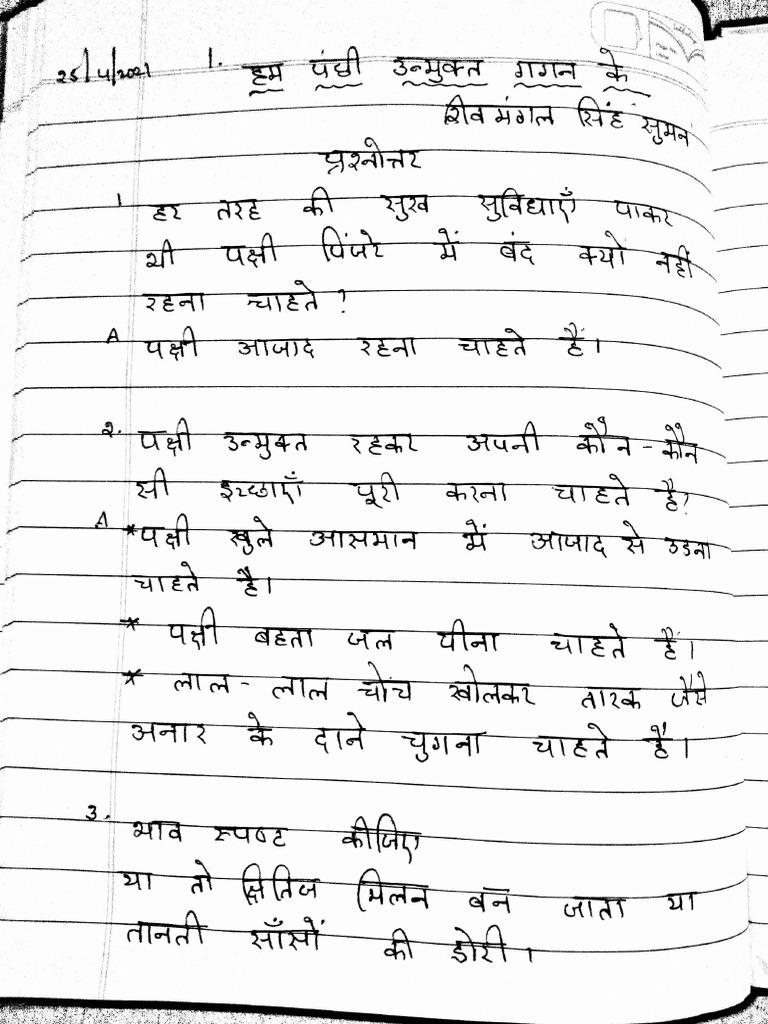 25/4/2021 1. हम पंछी उन्मुक्त गगन के
शिवमंगल सिंह सुमन
प्रश्नोत्तर
1 हर तरह की सुख सुविधाएँ पाकर
भी पक्षी पिंजरे में बंद क्यों नहीं
रहना चाहते ?
A पक्षी आजाद रहना चाहते हैं।
२. पक्षी उन्मुक्त रहकर अपनी कौन-कौन
सी इच्छाएँ पूरी करना चाहते है?
A *पक्षी खुले आसमान में आजाद से उडना
चाहते है।
* पक्षी बहता जल पीना चाहते हैं।
* लाल-लाल चोंच खोलकर तारक जैसे
अनार के दाने चुगना चाहते हैं।
3. भाव स्पष्ट कीजिए
या तो क्षितिज मिलन बन जाता या
तानती साँसों की डोरी।